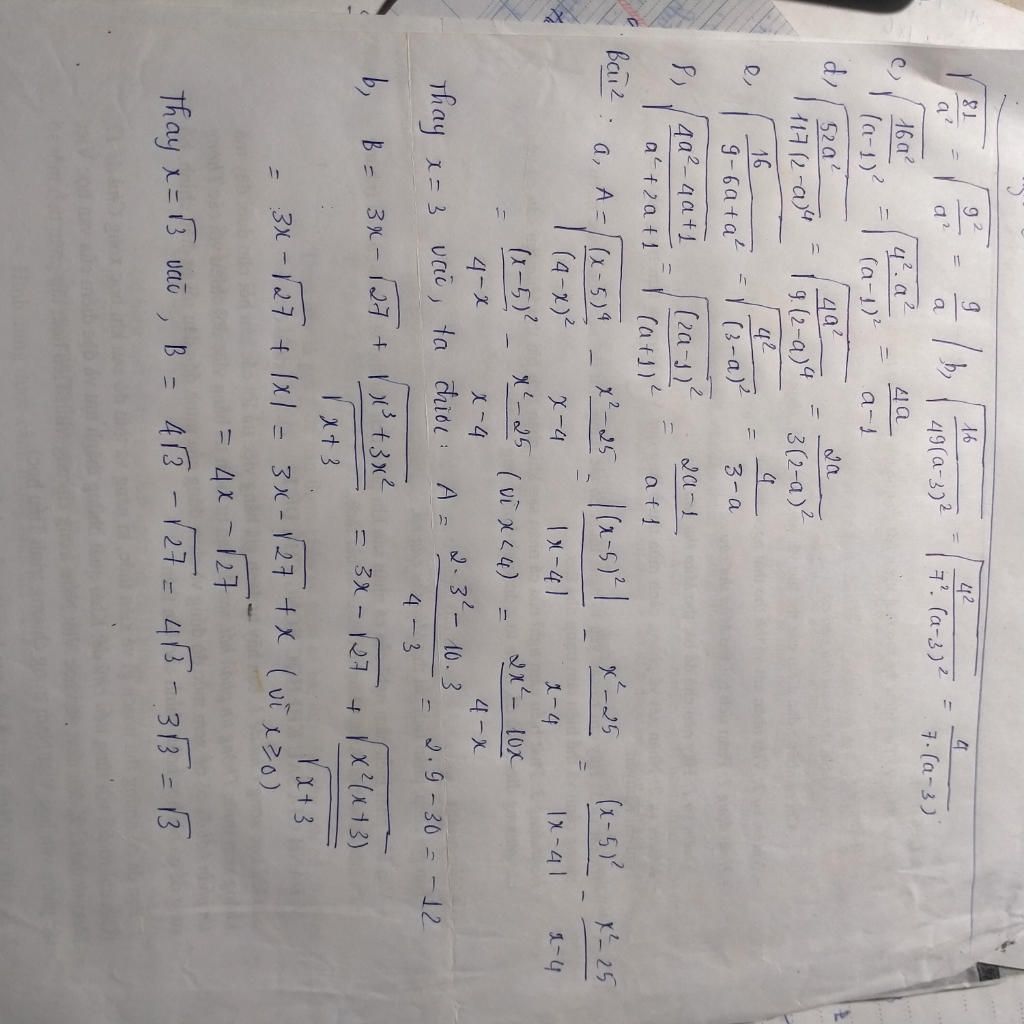 √(81/a²) = √(9²/a²) = 9/a | b, √(16/49(a-3)²) = √(4²/7².(a-3)²) = 4/7.(a-3)
c, √(16a²/(a-1)²) = √(4².a²/(a-1)²) = 4a/a-1
d, √(52a²/117(2-a)⁴) = √(4a²/9(2-a)⁴) = 2a/3(2-a)²
e, √(16/9-6a+a²) = √(4²/(3-a)²) = 4/3-a
f, √(4a²-4a+1/a²+2a+1) = √((2a-1)²/(a+1)²) = 2a-1/a+1
Bài 2: a, A = √((x-5)⁴/(4-x)²) - x²-25/x-4 = |(x-5)²|/|x-4| - x²-25/x-4 = (x-5)²/|x-4| - x²-25/x-4
= (x-5)²/4-x - x²-25/x-4 (vì x<4) = 2x²-10x/4-x
Thay x = 3 vào, ta được: A = 2.3²-10.3/4-3 = 2.9-30 = -12
b, B = 3x - √27 + √(x³+3x²)/√(x+3) = 3x - √27 + √(x²(x+3))/√(x+3)
= 3x - √27 + |x| = 3x - √27 + x (vì x ≥ 0)
= 4x - √27
Thay x = √3 vào, B = 4√3 - √27 = 4√3 - 3√3 = √3